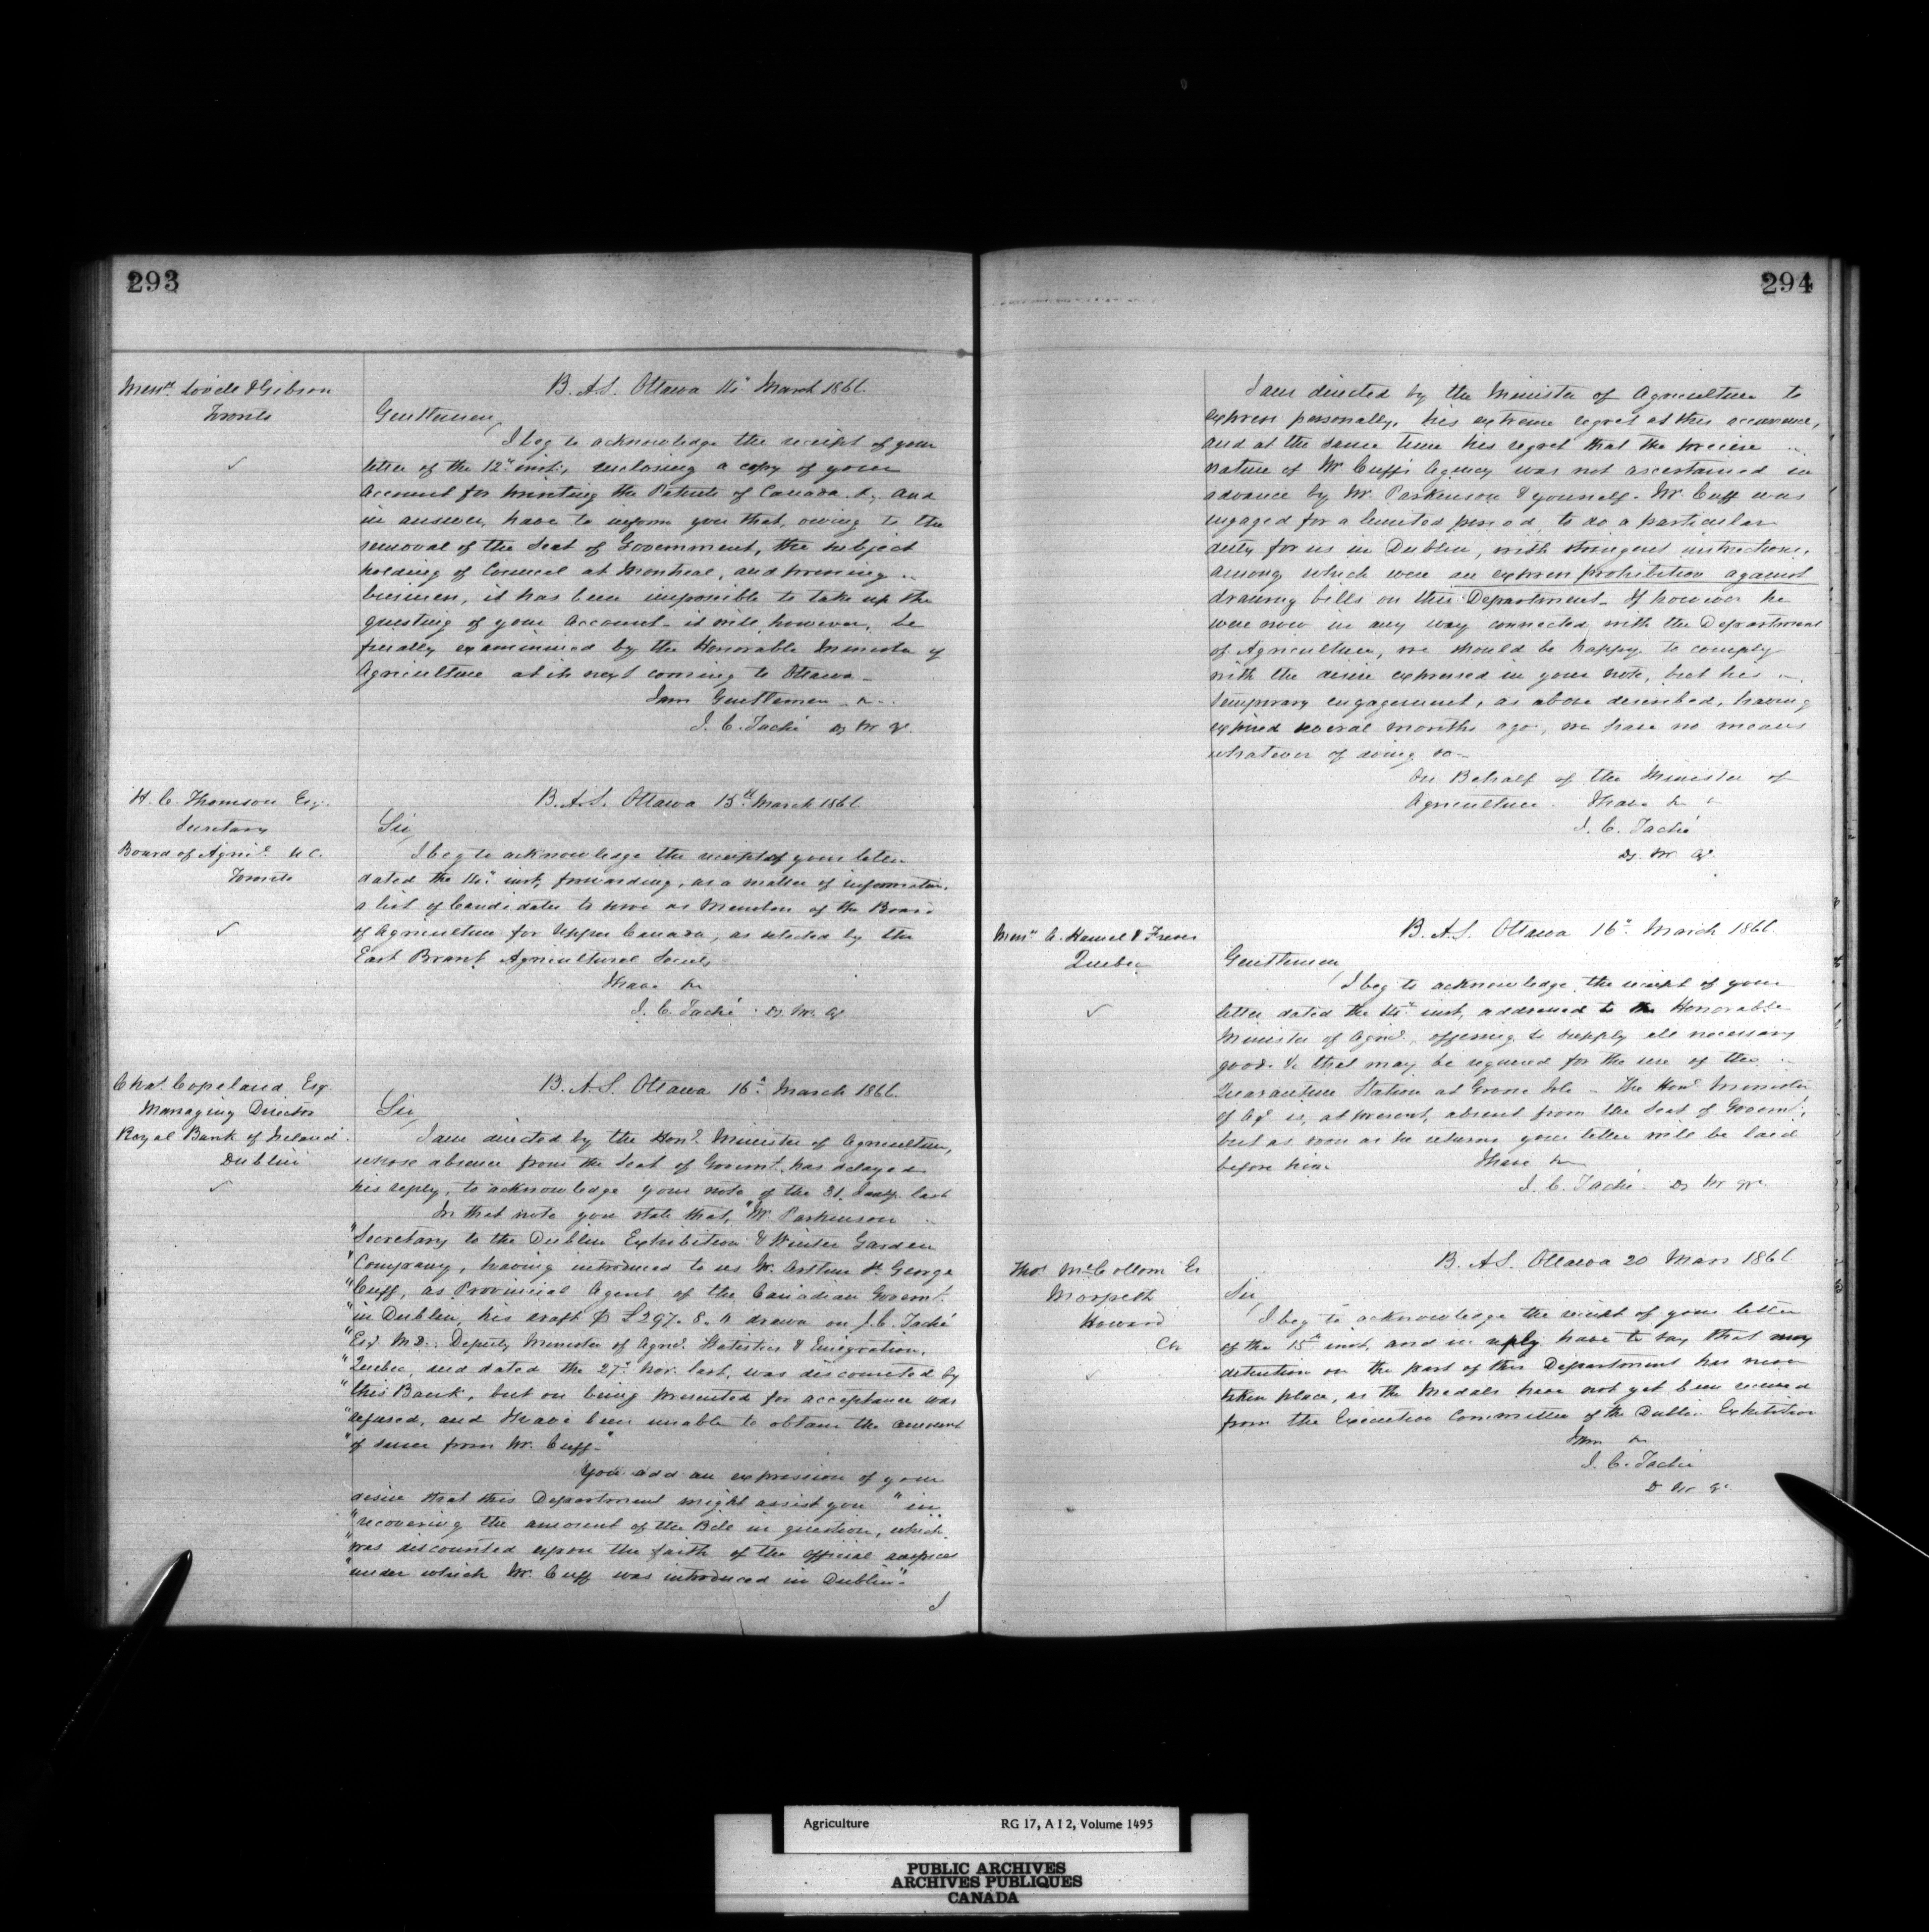 293
Messrs. Lovell & Gibson
Toronto
B. A. S. Ottawa 14" March 1866.
Gentlemen,
I beg to acknowledge the receipt of your
letter of the 12" inst., enclosing a copy of your
Account for printing the Patents of Canada &; and
in answer, have to inform you that, owing to the
removal of the Seat of Government, the subject
holding of Council at Montreal, and pressing
business, it has been impossible to take up the
questing of your Account - it will, however, be
finally examinined by the Honorable Minister of
Agriculture at its next coming to Ottawa -
I am Gentlemen &c.
J. C. Taché Dy M. Ar.
H. C. Thomson Esq.
Secretary
Board of Agric. U.C.
Toronto
B. A. S. Ottawa 15th March 1866
Sir,
I beg to acknowledge the receipt of your letter
dated the 14" inst, forwarding, as a matter of information,
a list of Candidates to serve as Members of the Board
of Agriculture for Upper Canada, as selected by the
East Brant Agricultural Society
I have &c
J. C. Taché Dy M. Ar
Chas. Copeland Esq.
Managing Director
Royal Bank of Ireland
Dublin
B. A. S. Ottawa 16" March 1866.
Sir,
I am directed by the Hon. Minister of Agriculture,
whose absence from the Seat of Governt. has delayed
his reply, to acknowledge your note of the 31. Jany. last
In that note you state that, "Mr. Parkinson
"Secretary to the Dublin Exhibition & Winter Garden
"Company, having introduced to us Mr. Arthur H. George
"Cuff, as Provincial Agent of the Canadian Governt.
"in Dublin, his draft p £297. 8. drawn on J. C. Taché
"Esq. M.D. Deputy Minister of Agric. Statistics & Emigration,
"Quebec, and dated the 27" Nov. last, was discounted by
"this Bank, but on being presented for acceptance was
"refused, and I have been unable to obtain the amount
"of same from Mr. Cuff."
You add an expression of your
desire that this Department might assist you "in
"recovering the amount of the Bill in question, which
"was discounted upon the faith of the official auspices
"under which Mr. Cuff was introduced in Dublin".
I
294
I am directed by the Minister of Agriculture to
express personally, his extreme regret at this occurrence,
and at the same time his regret that the precise
nature of Mr Cuff's Agency was not ascertained in
advance by Mr. Parkinson & yourself. Mr. Cuff was
engaged for a limited period, to do a particular
duty for us in Dublin, with stringent instructions,
among which were an express prohibition against
drawing bills on this Department - If however he
were now in any way connected with the Department
of Agriculture, we should be happy to comply
with the desire expressed in your note, but his
temporary engagement, as above described, having
expired several months ago, we have no means
whatever of doing so -
On Behalf of the Minister of
Agriculture I have &c
J. C. Taché
Dy. M. Ar.
Messrs. C. Hamel & Freres
Quebec
B. A. S. Ottawa 16" March 1866
Gentlemen,
I beg to acknowledge the receipt of your
letter dated the 14" inst, addressed to the Honorable
Minister of Agric., offering to supply all necessary
goods &c that may be required for the use of the
Quarantine Station at Grosse Isle - The Hon. Minister
of Ar. is, at present, absent from the Seat of Governt.,
but as soon as he returns your letter will be laid
before him
I have &c
J. C. Taché Dy M Ar.
Thos. McCollom Es
Morpeth
Howard
CW
B. A. S. Ottawa 20 Mars 1866
Sir,
I beg to acknowledge the receipt of your letter
of the 15" inst, and in reply have to say that any
detention on the part of this Department has never
taken place, as the Medals have not yet been received
from the Executive Committee of the Dublin Exhibition
I am &c
J. C. Taché
D M Ar.
Agriculture RG 17, A I 2, Volume 1495
PUBLIC ARCHIVES
ARCHIVES PUBLIQUES
CANADA